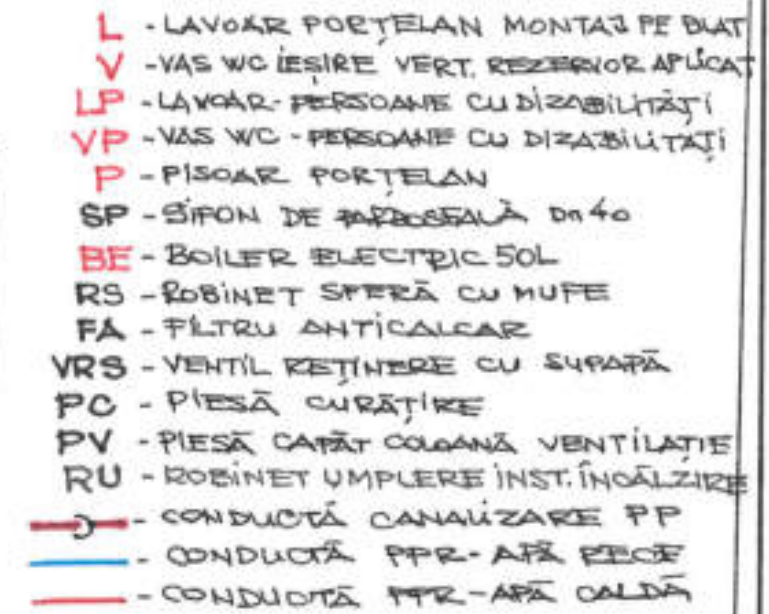 L - LAVOAR PORȚELAN MONTAJ PE BLAT
V - VAS WC IEȘIRE VERT. REZERVOR APLICAT
LP - LAVOAR-PERSOANE CU DIZABILITĂȚI
VP - VAS WC - PERSOANE CU DIZABILITAȚI
P - PISOAR PORȚELAN
SP - SIFON DE PARDOSEALĂ Dn 40
BE - BOILER ELECTRIC 50L
RS - ROBINET SFERĂ CU MUFE
FA - FILTRU ANTICALCAR
VRS - VENTIL REȚINERE CU SUPAPĂ
PC - PIESĂ CURĂȚIRE
PV - PIESĂ CAPĂT COLOANĂ VENTILAȚIE
RU - ROBINET UMPLERE INST. ÎNCĂLZIRE
- CONDUCTĂ CANALIZARE PP
- CONDUCTĂ PPR - APĂ RECE
- CONDUCTĂ PPR - APĂ CALDĂ